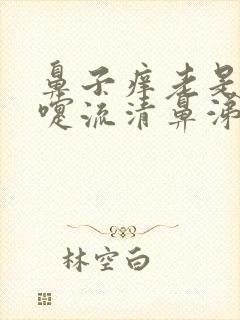 鼻子痒老是
嚏流清鼻涕
林空白